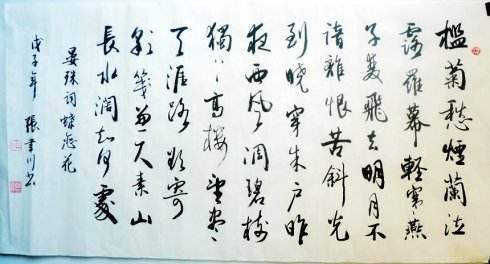 檻菊愁煙蘭泣
露羅幕輕寒燕
子雙飛去明月不
諳離恨苦斜光
到曉穿朱戶昨
夜西風凋碧樹
獨上高樓望盡
天涯路欲寄
彩箋兼尺素山
長水闊知何處
晏殊詞蝶恋花
戊子年 張書川书